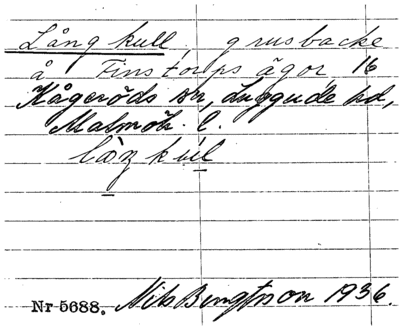 Lång kull, grusbacke
å Finstorps ägor, 16
Kågeröds sn, Luggude hd,
Malmöh. l.
Nr 5688. Nils Bengtsson 1936.